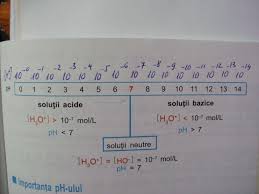 [H⁺] 10⁻⁰ 10⁻¹ 10⁻² 10⁻³ 10⁻⁴ 10⁻⁵ 10⁻⁶ 10⁻⁷ 10⁻⁸ 10⁻⁹ 10⁻¹⁰ 10⁻¹¹ 10⁻¹² 10⁻¹³ 10⁻¹⁴
pH 0 1 2 3 4 5 6 7 8 9 10 11 12 13 14
soluții acide soluții bazice
[H₃O⁺] > 10⁻⁷ mol/L [H₃O⁺] < 10⁻⁷ mol/L
pH < 7 pH > 7
soluții neutre
[H₃O⁺] = [HO⁻] = 10⁻⁷ mol/L
pH = 7
Importanța pH-ului